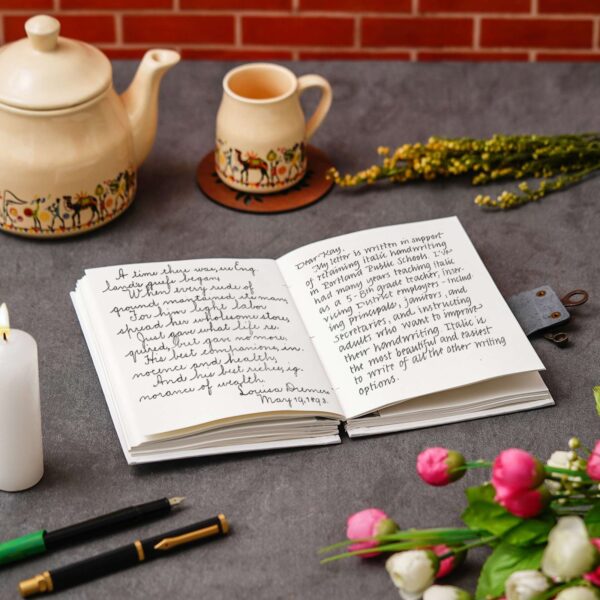 A time there was, ere Eng-
lands griefs began,
When every rude of
ground maintained its man;
For him light labor
spread her wholesome store,
Just gave what life re-
quired, but gave no more;
His best companions, in-
nocence and health,
And his best riches, ig-
norance of wealth.
Louisa
May 19, 1893.
Dear Kay,
My letter is written in support
of retaining italic handwriting
in Portland Public Schools. I've
had many years teaching italic
as a 5-8th grade teacher, inser-
vicing District employees - includ
ing principals, janitors, and
secretaries, and instructing
adults who want to improve
their handwriting. Italic is
the most beautiful and easiest
to write of all the other writing
options.